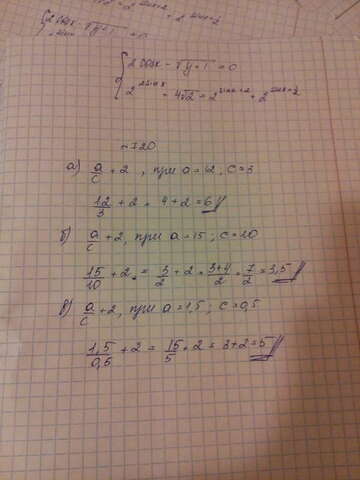 2 cos x - √y+1 = 0
n 720
а) a/c + 2, при a = 12, c = 3
12/3 + 2 = 4 + 2 = 6
б) a/c + 2, при a = 15; c = 10
15/10 + 2 = 3/2 + 2 = 3+4/2 = 7/2 = 3,5
в) a/c + 2, при a = 1,5; c = 0,5
1,5/0,5 + 2 = 15/5 + 2 = 3 + 2 = 5